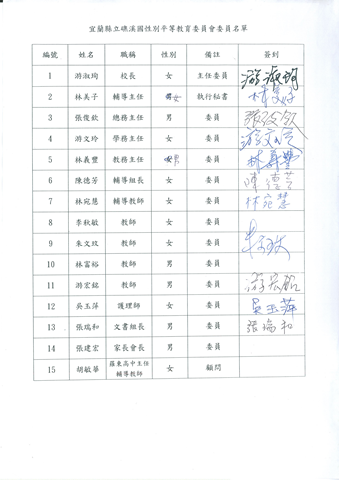 宜蘭縣立礁溪國性別平等教育委員會委員名單
編號 姓名 職稱 性別 備註 簽到
1 游淑珣 校長 女 主任委員 游淑珣
2 林美子 輔導主任 女 執行秘書
3 張俊欽 總務主任 男 委員 張俊欽
4 游文玲 學務主任 女 委員 游文玲
5 林義豐 教務主任 男 委員 林義豐
6 陳德芳 輔導組長 女 委員 陳德芳
7 林宛慧 輔導教師 女 委員 林宛慧
8 李秋敏 教師 女 委員
9 朱文玟 教師 女 委員
10 林富裕 教師 男 委員
11 游宏銘 教師 男 委員 游宏銘
12 吳玉萍 護理師 女 委員 吳玉萍
13 張瑞和 文書組長 男 委員 張瑞和
14 張建宏 家長會長 男 委員
15 胡敏華 羅東高中主任 女 顧問
輔導教師